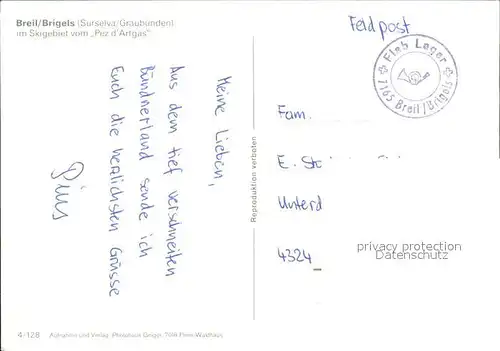 Breil/Brigels (Surselva/Graubünden)
im Skigebiet vom „Péz d'Artgas"
Meine Lieben,
Aus dem tief verschneiten
Bündnerland sende ich
Euch die herzlichsten Grüsse
Pius
Reproduktion verboten
Feldpost
Flab Lager
7165 Breil/Brigels
Fam.
E. St
Unterd
4324
privacy protection
AnsichtskartenVersand.com
4/128 Aufnahme und Verlag: Photohaus Geiger, 7018 Flims-Waldhaus